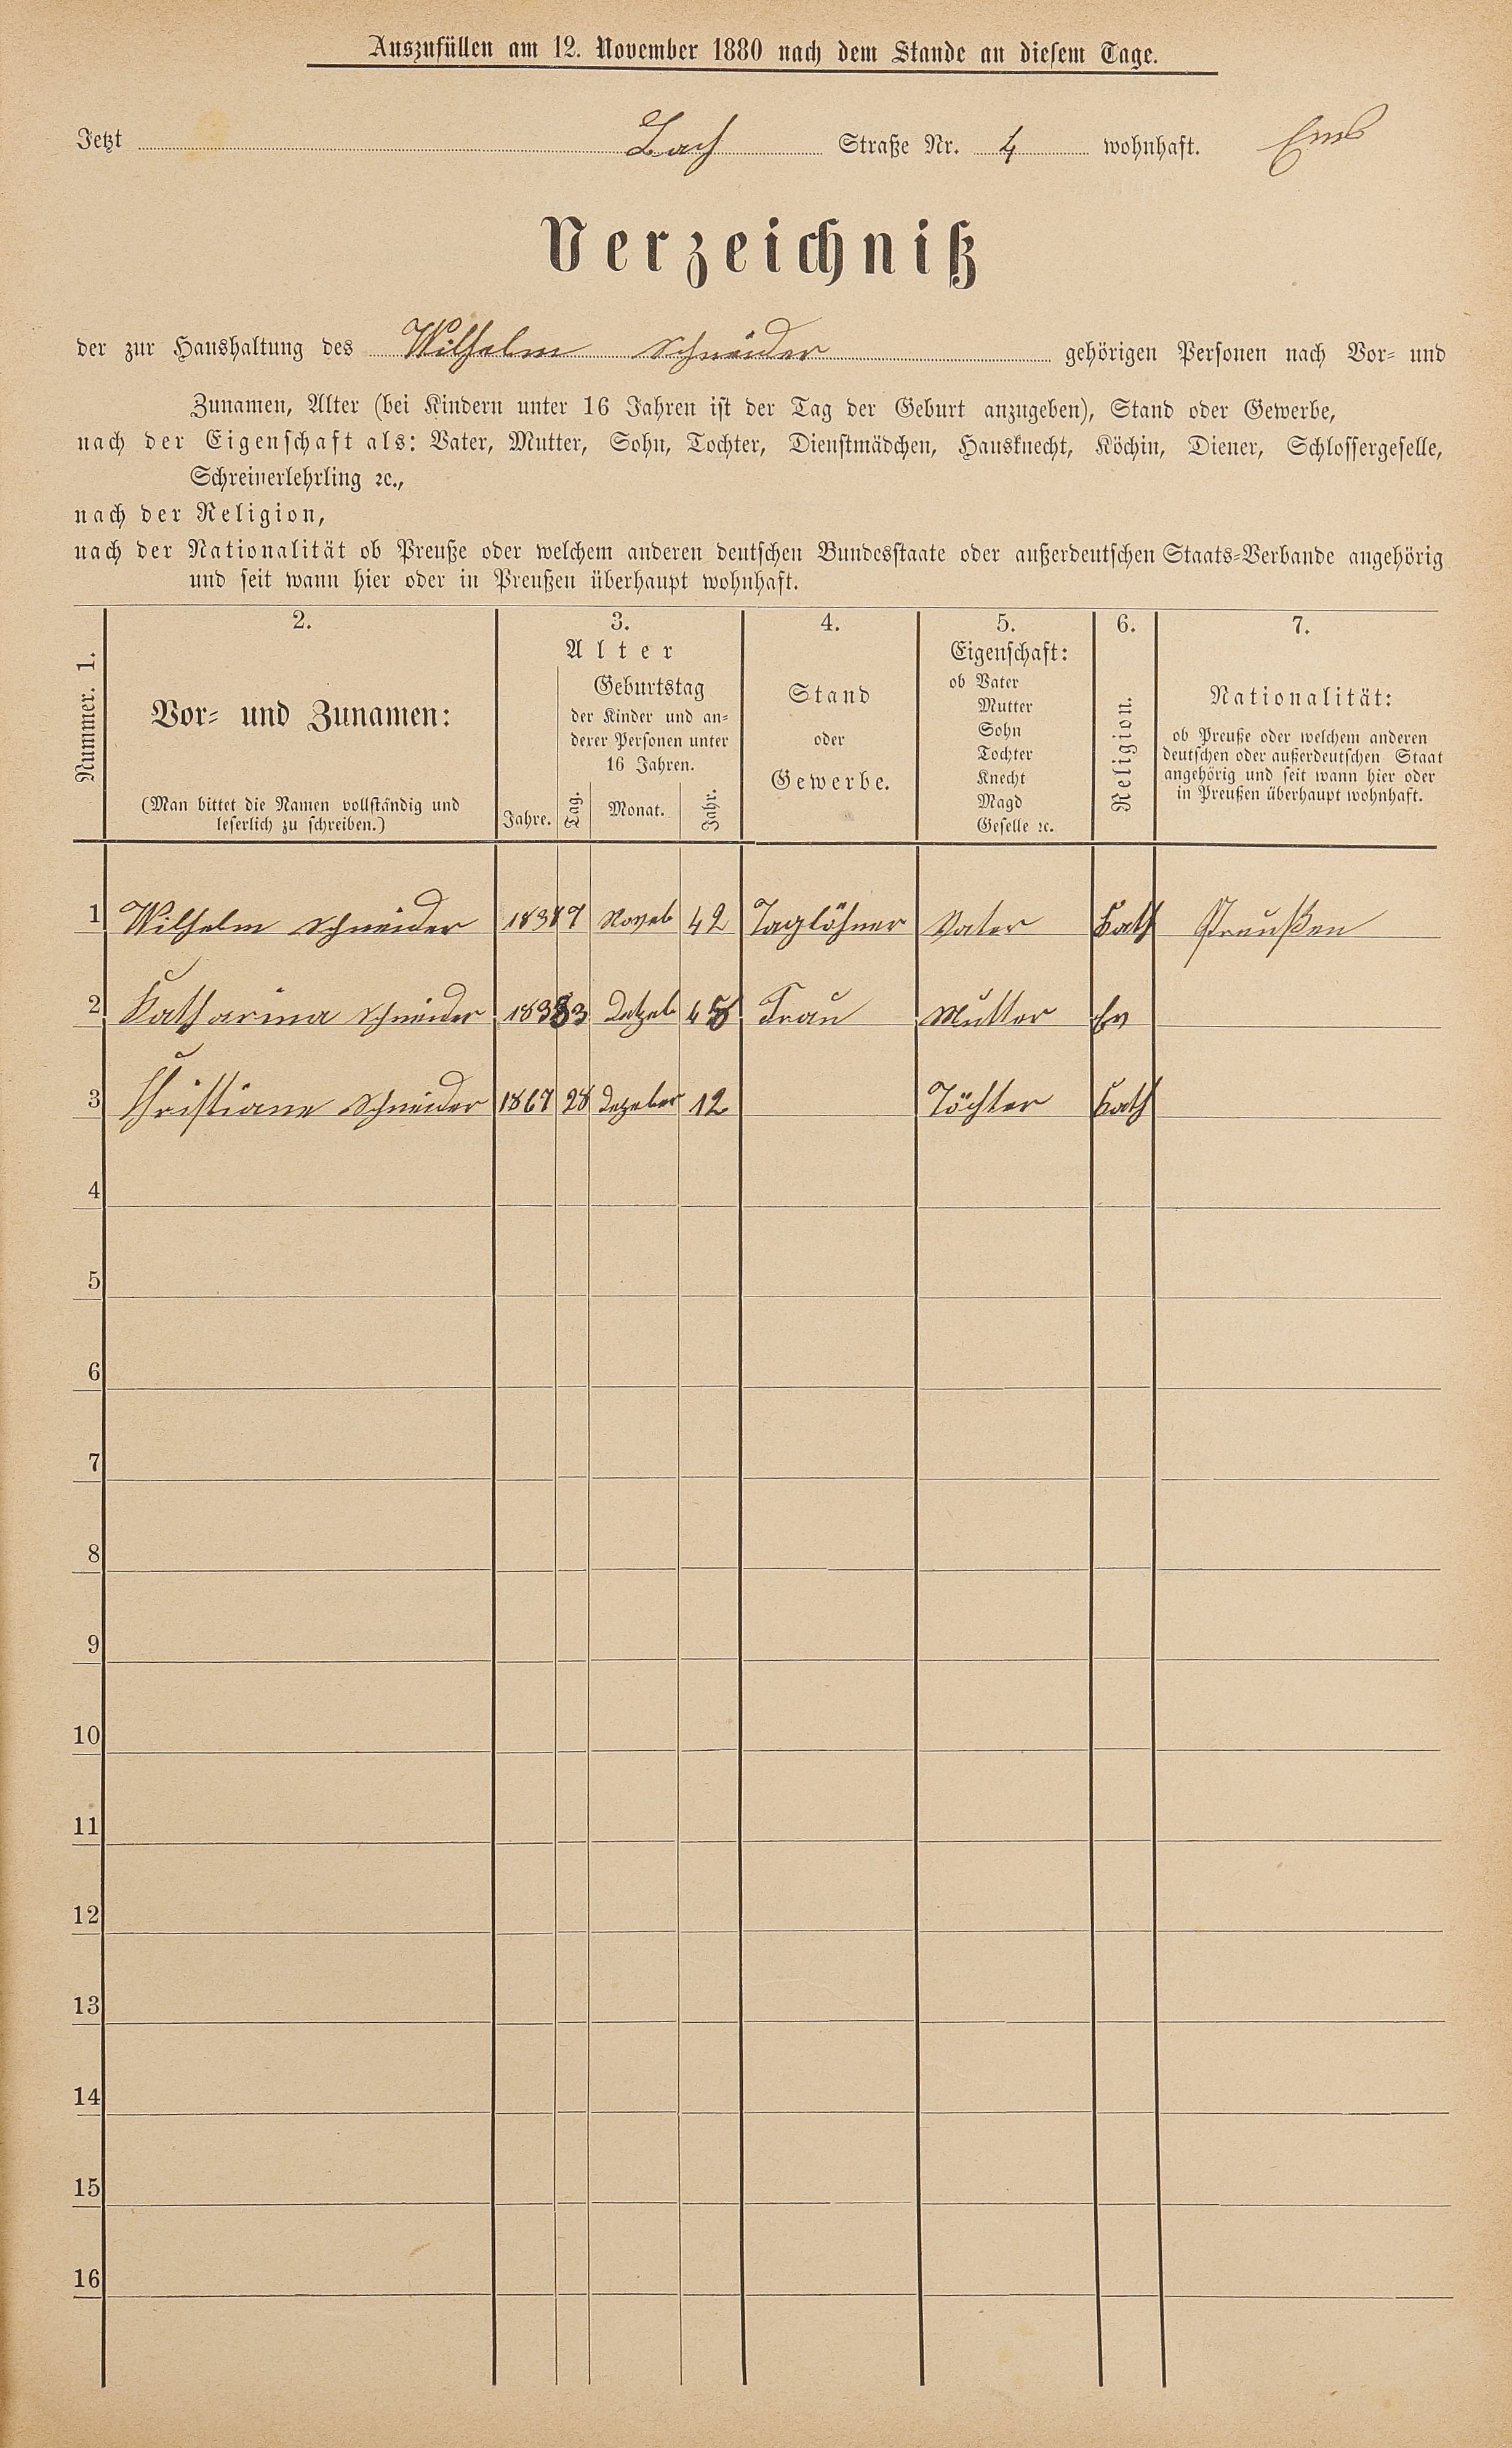 Auszufüllen am 12. November 1880 nach dem Stande an diesem Tage.
Jetzt Bach Straße Nr. 4 wohnhaft. Ems
Verzeichniß
der zur Haushaltung des Wilhelm Schneider gehörigen Personen nach Vor- und
Zunamen, Alter (bei Kindern unter 16 Jahren ist der Tag der Geburt anzugeben), Stand oder Gewerbe,
nach der Eigenschaft als: Vater, Mutter, Sohn, Tochter, Dienstmädchen, Hausknecht, Köchin, Diener, Schlossergeselle,
Schreinerlehrling ꝛc.,
nach der Religion,
nach der Nationalität ob Preuße oder welchem anderen deutschen Bundesstaate oder außerdeutschen Staats-Verbande angehörig
und seit wann hier oder in Preußen überhaupt wohnhaft.
Nummer. 1.
2.
Vor- und Zunamen:
(Man bittet die Namen vollständig und
leserlich zu schreiben.)
3.
Alter
Geburtstag
der Kinder und an-
derer Personen unter
16 Jahren.
Jahre. Tag. Monat. Jahr.
4.
Stand
oder
Gewerbe.
5.
Eigenschaft:
ob Vater
Mutter
Sohn
Tochter
Knecht
Magd
Geselle ꝛc.
6.
Religion.
7.
Nationalität:
ob Preuße oder welchem anderen
deutschen oder außerdeutschen Staat
angehörig und seit wann hier oder
in Preußen überhaupt wohnhaft.
1 Wilhelm Schneider 1838 7 Noveb 42 Taglöhner Vater Kath Preußen
2 Katharina Schneider 3 Frau Mutter Ev
3 Christiane Schneider 1867 28 Dezeber 12 Töchter Kath
4
5
6
7
8
9
10
11
12
13
14
15
16